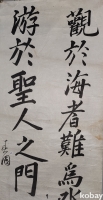 觀於海者難為水
游於聖人之門
kobay